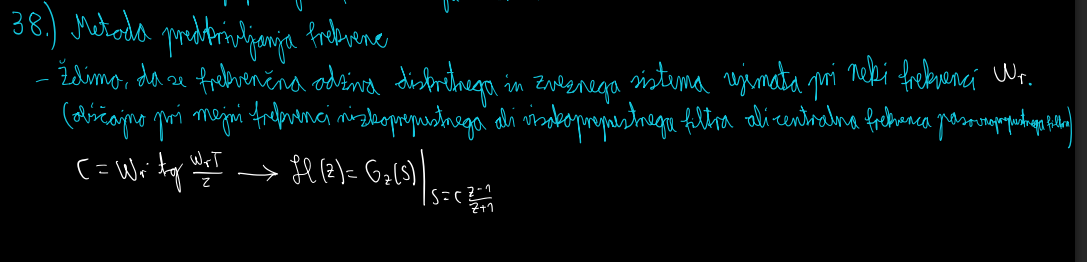 38.) Metoda predkrivljanja frekvenc
- Želimo, da se frekvenčna odziva diskretnega in zveznega sistema ujemata pri neki frekvenci ωr.
(običajno pri mejni frekvenci nizkoprepustnega ali visokoprepustnega filtra ali centralna frekvenca pasovnoprepustnega filtra)
C = ωr · tg ωrT/2 → H(z) = G2(s)|s=c z-1/z+1